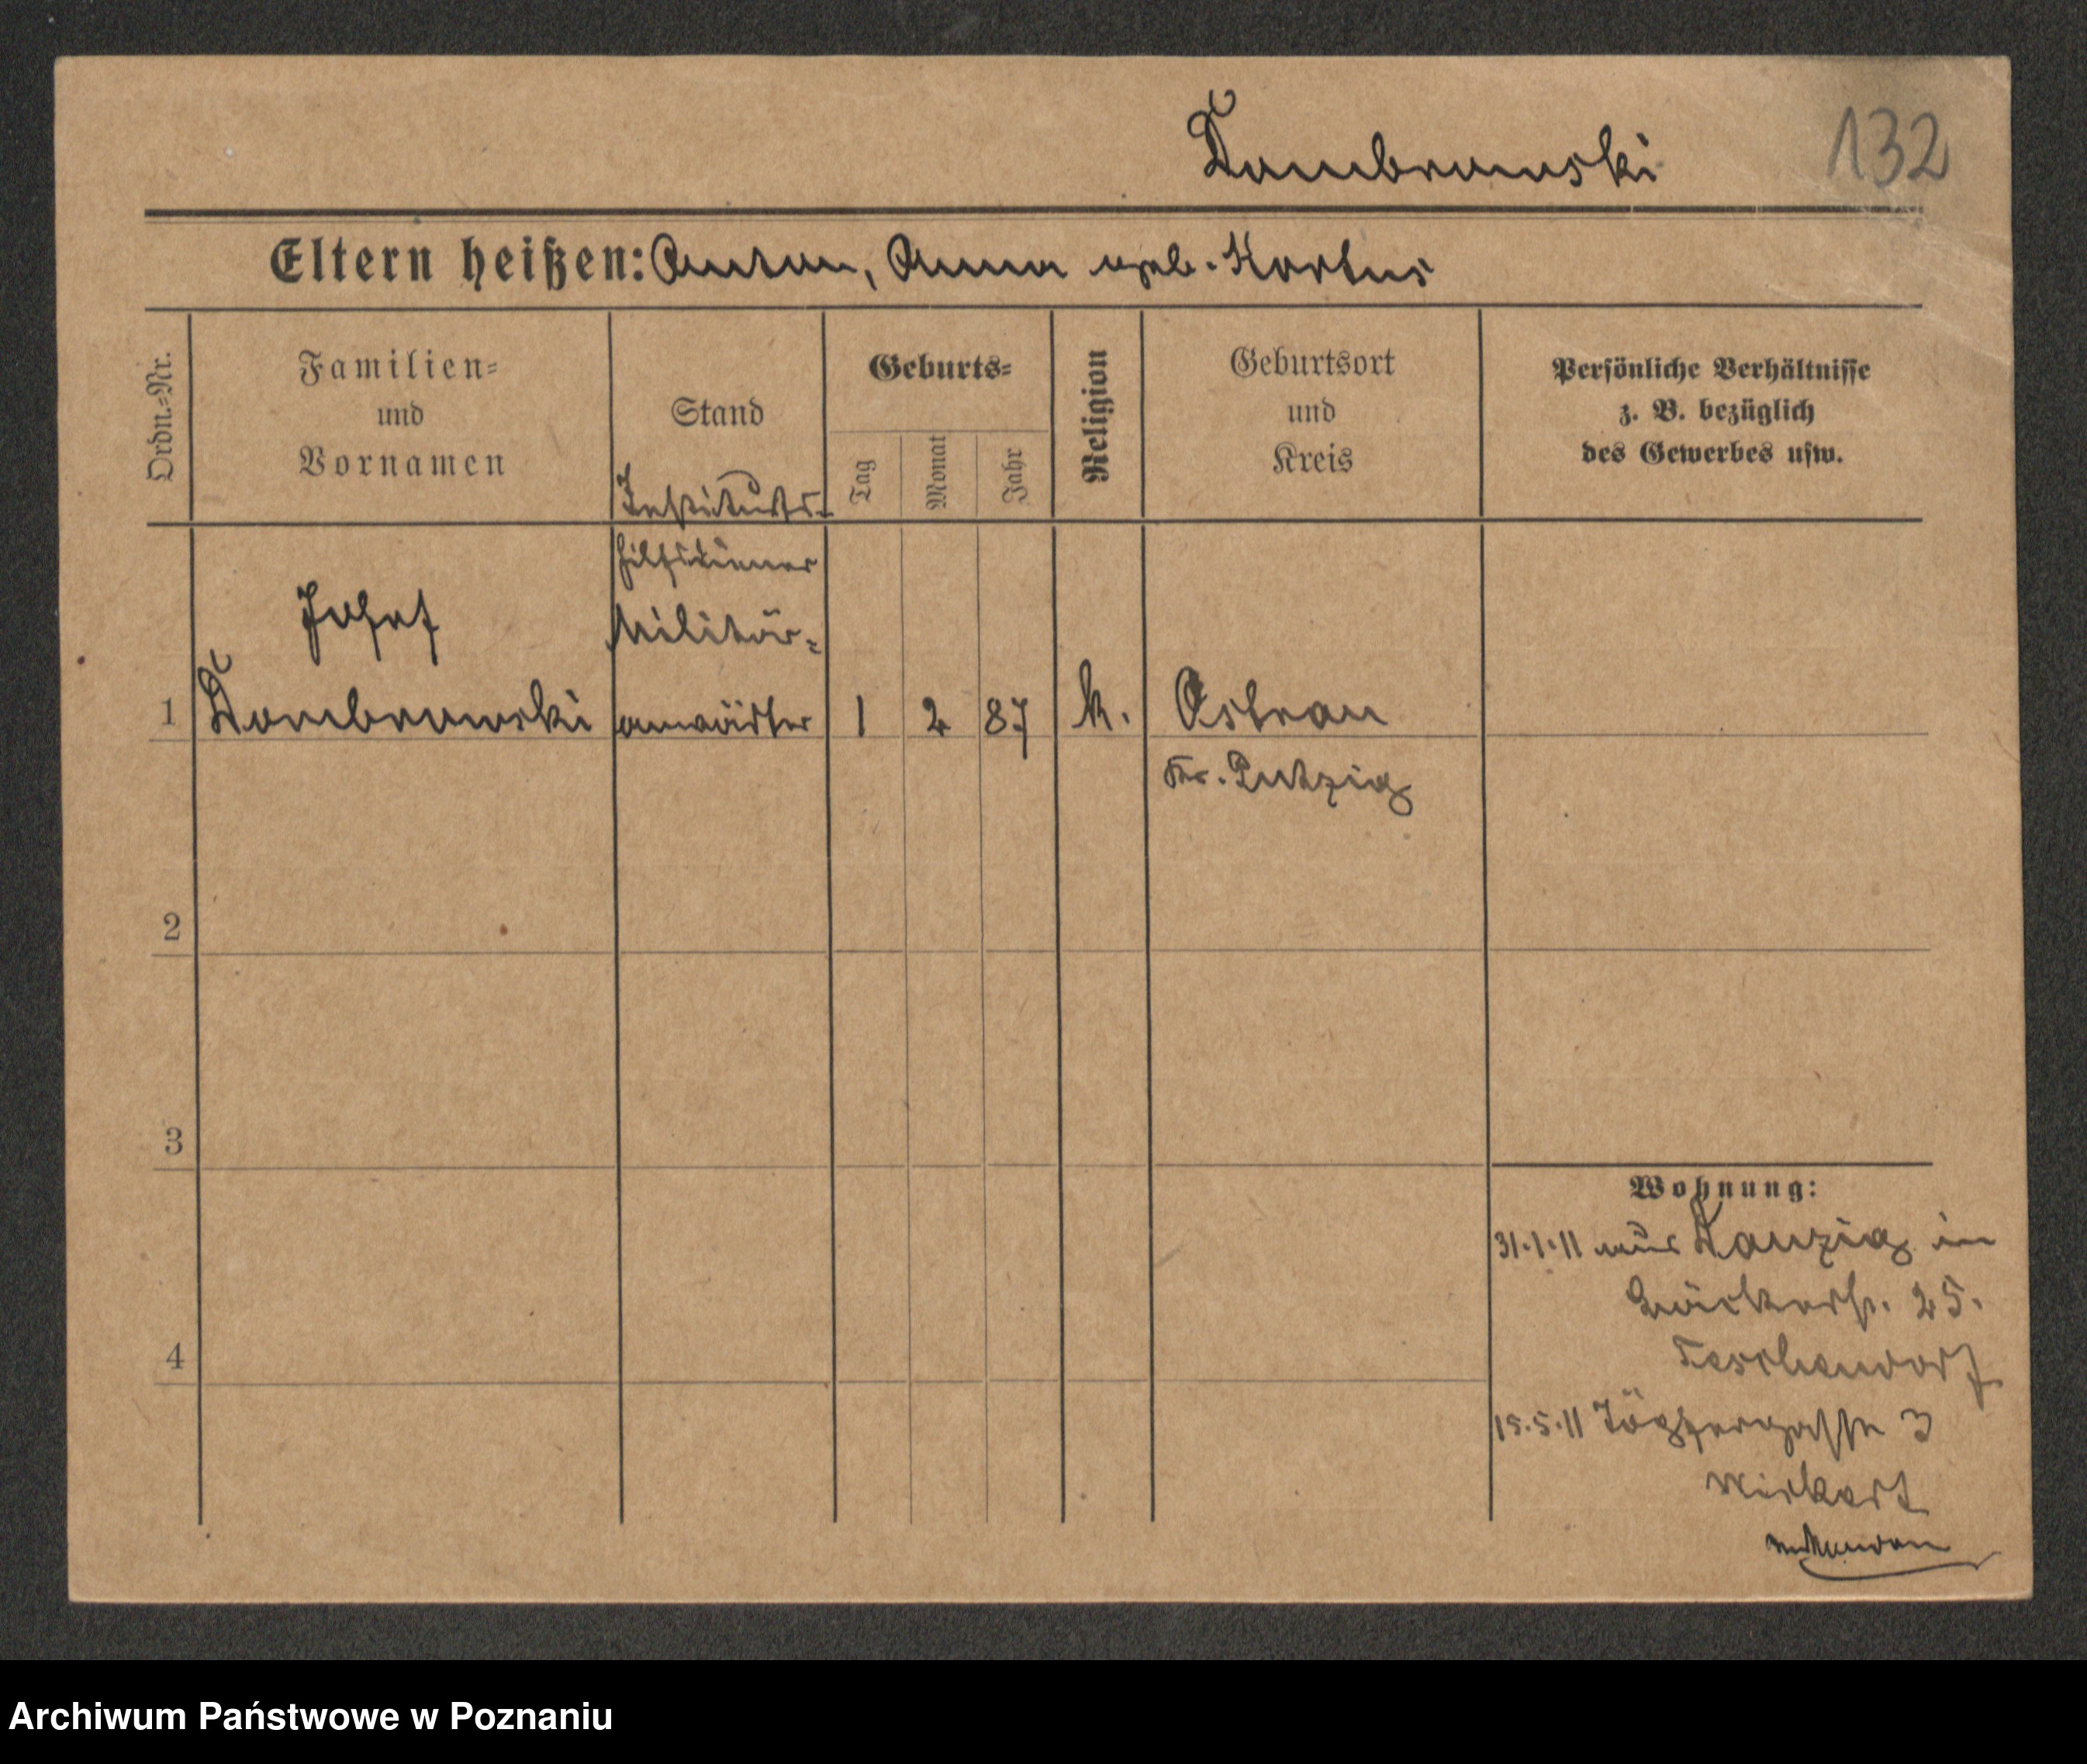 Dombrowski
132
Eltern heißen: Anton, Anna geb. Kortus
Ordn.=Nr.
Familien=
und
Vornamen
Stand
Geburts=
Tag
Monat
Jahr
Religion
Geburtsort
und
Kreis
Persönliche Verhältnisse
z. B. bezüglich
des Gewerbes usw.
Instituts-
hilfsdiener
Josef
Militär=
1 Dombrowski anwärter 1 2 87 k. Ostrau
Kr. Putzig
2
3
4
Wohnung:
31.1.11 aus Danzig in
Bäckerstr. 25.
Teschendorf
15.5.11 Töpfergasse 3
Archiwum Państwowe w Poznaniu